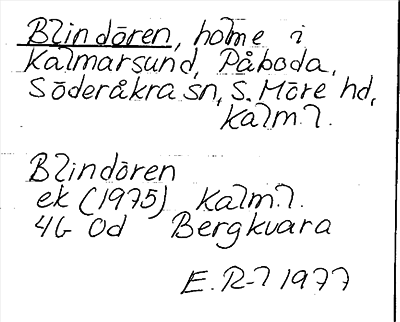 Blindören, holme i
Kalmarsund, Påboda,
Söderåkra sn, S. Möre hd,
Kalm.l.
Blindören
ek (1975) Kalm.l.
4G 0d Bergkvara
E. R-l 1977